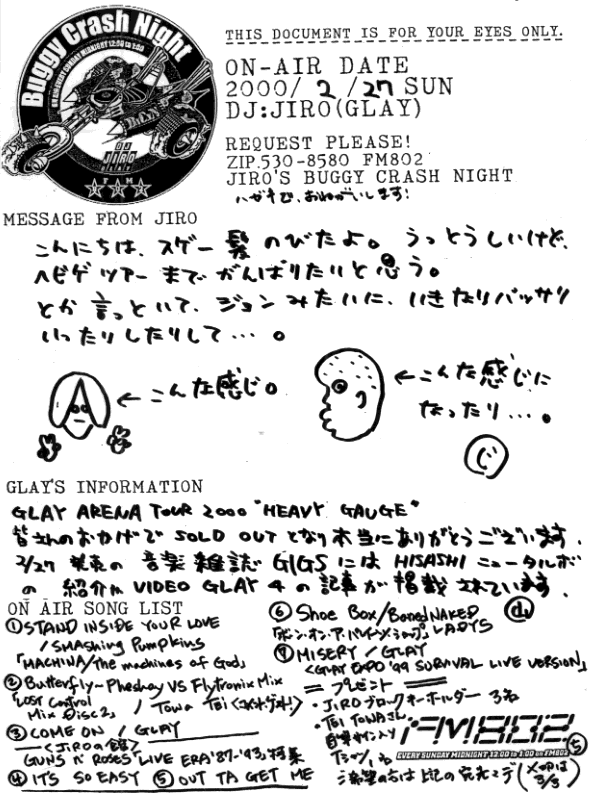 Buggy Crash Night
EVERY SUNDAY MIDNIGHT 12:00 to 1:00
DJ
JIRO
F M
802
THIS DOCUMENT IS FOR YOUR EYES ONLY.
ON-AIR DATE
2000/ 2 /27 SUN
DJ:JIRO(GLAY)
REQUEST PLEASE!
ZIP.530-8580 FM802
JIRO'S BUGGY CRASH NIGHT
ハガキで、おねがいします!
MESSAGE FROM JIRO
こんにちは、スゲー髪のびたよ。うっとうしいけど、
ヘビゲツアーまでがんばりたいと思う。
とか言っといて、ジョンみたいに、いきなりバッサリ
いったりしたりして…。
←こんな感じ。
←こんな感じに
なったり…。
じ
GLAY'S INFORMATION
GLAY ARENA TOUR 2000 "HEAVY GAUGE"
皆さんのおかげで SOLD OUT となり本当にありがとうございます.
2/27 発売の 音楽雑誌 GIGS には HISASHI ニューアルボ
の 紹介や VIDEO GLAY 4 の記事が 掲載 されています.
ON AIR SONG LIST
①STAND INSIDE YOUR LOVE
/SMAShing Pumpkins
「MACHINA/the machines of God」
②Butterfly-Pheshay VS Flytronix Mix
「LOST Control
Mix Disc2」 / Towa Tei
③COME ON / GLAY
<JIROの館>
GUNS N' ROSES「LIVE ERA '87-'93」特集
④IT'S SO EASY ⑤OUT TA GET ME
⑥Shoe Box/BareNAKED
LADYS
⑦MISERY / GLAY
<GLAY EXPO '99 SURVIVAL LIVE VERSION」
= プレゼント =
・JIROブロックキーホルダー 3名
・TEI TOWAさん
直筆サイン入り
Tシャツ 1名
FM802
EVERY SUNDAY MIDNIGHT 12:00 to 1:00 on FM802
ご希望の方は 上記の宛先まで(〆切は
3/3)